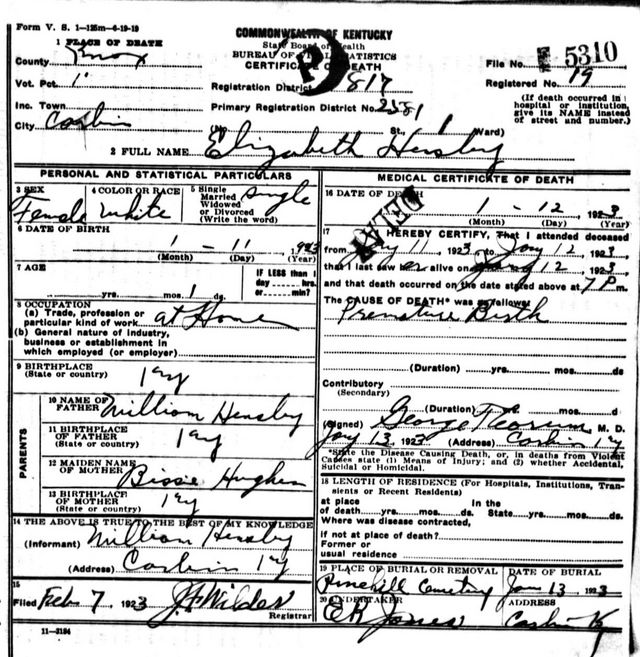 Form V. S. 1—125m—6-19-19
COMMONWEALTH OF KENTUCKY
State Board of Health
BUREAU OF VITAL STATISTICS
CERTIFICATE OF DEATH
1 PLACE OF DEATH
County Knox
File No. 5310
Vot. Pct. 1
Registration District 817
Registered No. 19
Inc. Town
Primary Registration District No. 2581
(If death occurred in hospital or institution, give its NAME instead of street and number.)
City Corbin
(No. St., 1 Ward)
2 FULL NAME Elizabeth Hensley
PERSONAL AND STATISTICAL PARTICULARS
3 SEX Female
4 COLOR OR RACE White
5 Single Married Widowed or Divorced (Write the word) Single
6 DATE OF BIRTH
1 - 11, 1923
(Month) (Day) (Year)
7 AGE
yrs. mos. 1 ds.
IF LESS than 1 day hrs. or min.?
8 OCCUPATION
(a) Trade, profession or particular kind of work at Home
(b) General nature of industry, business or establishment in which employed (or employer)
9 BIRTHPLACE
(State or country) Ky
PARENTS
10 NAME OF FATHER William Hensley
11 BIRTHPLACE OF FATHER (State or country) Ky
12 MAIDEN NAME OF MOTHER Bissie Hughes
13 BIRTHPLACE OF MOTHER (State or country) Ky
14 THE ABOVE IS TRUE TO THE BEST OF MY KNOWLEDGE
(Informant) William Hensley
(Address) Corbin Ky
15
Filed Feb 7 1923 J F Wilder
Registrar
11—3184
MEDICAL CERTIFICATE OF DEATH
16 DATE OF DEATH
1 - 12 1923
(Month) (Day) (Year)
17 I HEREBY CERTIFY, That I attended deceased
from Jany 11, 1923, to Jany 12, 1923,
that I last saw her alive on Jany 12, 1923,
and that death occurred on the date stated above at 7 P m.
The CAUSE OF DEATH* was as follows:
Premature Birth
(Duration) yrs. mos. ds.
Contributory
(Secondary)
(Duration) yrs. mos. d
(Signed) George M. D.
Jany 13, 1923 (Address) Corbin Ky
*State the Disease Causing Death, or, in deaths from Violent Causes state (1) Means of Injury; and (2) whether Accidental, Suicidal or Homicidal.
18 LENGTH OF RESIDENCE (For Hospitals, Institutions, Transients or Recent Residents)
At place of death yrs. mos. ds. In the State yrs. mos. ds.
Where was disease contracted,
if not at place of death?
Former or
usual residence
19 PLACE OF BURIAL OR REMOVAL DATE OF BURIAL
Pinehill Cemetery Jan 13 1923
20 UNDERTAKER ADDRESS
E R Jones Corbin Ky